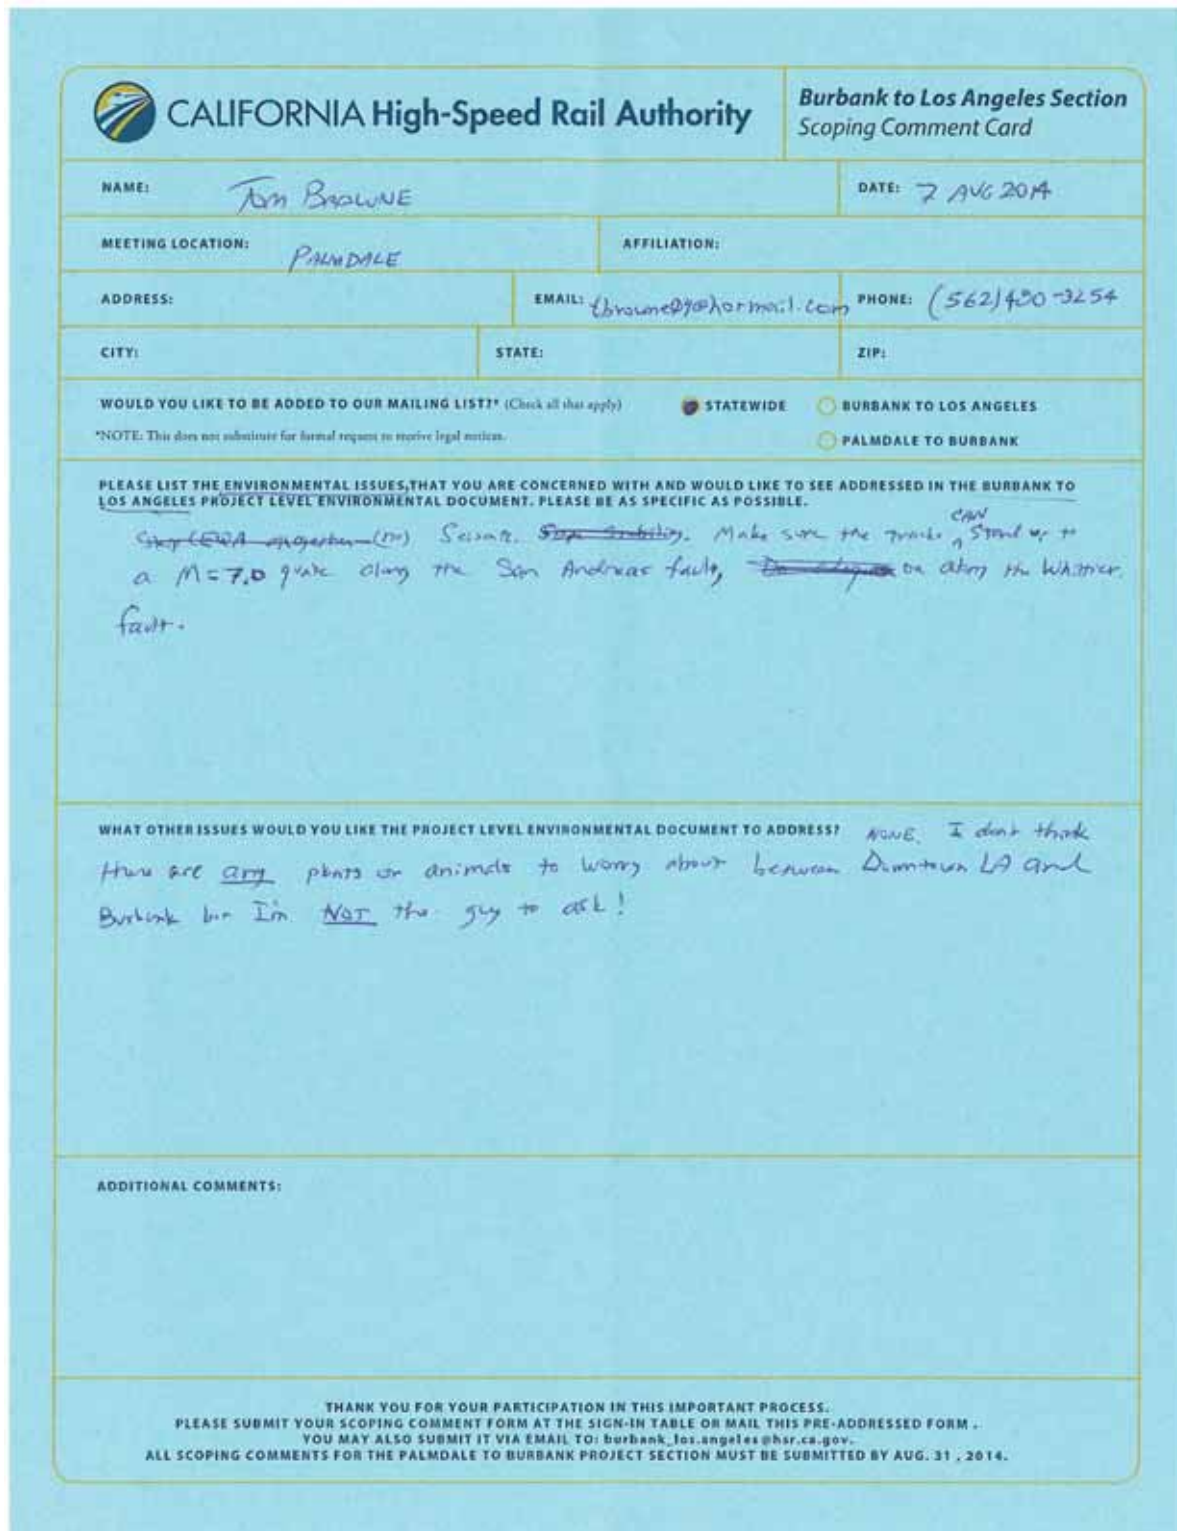 CALIFORNIA High-Speed Rail Authority
Burbank to Los Angeles Section
Scoping Comment Card
NAME: Tom BROWNE
DATE: 7 AUG 2014
MEETING LOCATION: PALMDALE
AFFILIATION:
ADDRESS:
EMAIL:
PHONE: (562) 430-3254
CITY:
STATE:
ZIP:
WOULD YOU LIKE TO BE ADDED TO OUR MAILING LIST?* (Check all that apply)
STATEWIDE
BURBANK TO LOS ANGELES
*NOTE: This does not substitute for formal request to receive legal notices.
PALMDALE TO BURBANK
PLEASE LIST THE ENVIRONMENTAL ISSUES, THAT YOU ARE CONCERNED WITH AND WOULD LIKE TO SEE ADDRESSED IN THE BURBANK TO
LOS ANGELES PROJECT LEVEL ENVIRONMENTAL DOCUMENT. PLEASE BE AS SPECIFIC AS POSSIBLE.
(no) Seismic. Make sure the tracks CAN stand up to
a M=7.0 quake along the San Andreas fault, or along the Whittier
fault.
WHAT OTHER ISSUES WOULD YOU LIKE THE PROJECT LEVEL ENVIRONMENTAL DOCUMENT TO ADDRESS? NONE. I don't think
there are any plants or animals to worry about between Downtown LA and
Burbank but I'm NOT the guy to ask!
ADDITIONAL COMMENTS:
THANK YOU FOR YOUR PARTICIPATION IN THIS IMPORTANT PROCESS.
PLEASE SUBMIT YOUR SCOPING COMMENT FORM AT THE SIGN-IN TABLE OR MAIL THIS PRE-ADDRESSED FORM .
YOU MAY ALSO SUBMIT IT VIA EMAIL TO: burbank_los.angeles@hsr.ca.gov.
ALL SCOPING COMMENTS FOR THE PALMDALE TO BURBANK PROJECT SECTION MUST BE SUBMITTED BY AUG. 31 , 2014.